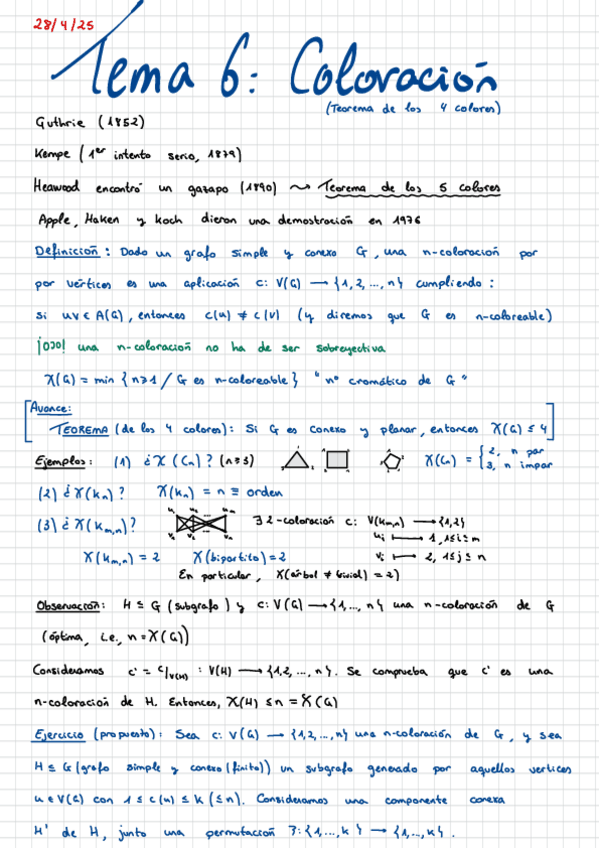 28/4/25
Tema 6: Coloración
(Teorema de los 4 colores)
Guthrie (1852)
Kempe (1er intento serio, 1879)
Heawood encontró un gazapo (1890) ⤳ Teorema de los 5 colores
Apple, Haken y Koch dieron una demostración en 1976
Definición: Dado un grafo simple y conexo G, una n-coloración por
por vértices es una aplicación c: V(G) → {1,2,...,n} cumpliendo:
si uv ∈ A(G), entonces c(u) ≠ c(v) (y diremos que G es n-coloreable)
¡OJO! una n-coloración no ha de ser sobreyectiva
χ(G) = min {n≥1 / G es n-coloreable} "nº cromático de G"
Avance:
TEOREMA (de los 4 colores): Si G es conexo y planar, entonces χ(G) ≤ 4
Ejemplos: (1) ¿χ(Cn)? (n≥3) χ(Cn) = { 2, n par
3, n impar
(2) ¿χ(Kn)? χ(Kn) = n ≡ orden
(3) ¿χ(Km,n)? ∃ 2-coloración c: V(Km,n) → {1,2}
ui ↦ 1, 1≤i≤m
χ(Km,n) = 2 χ(bipartito) = 2 vj ↦ 2, 1≤j≤n
En particular, χ(árbol ≠ trivial) = 2)
Observación: H ≤ G (subgrafo) y c: V(G) → {1,...,n} una n-coloración de G
(óptima, i.e., n = χ(G))
Consideramos c' = c|V(H) : V(H) → {1,2,...,n}. Se comprueba que c' es una
n-coloración de H. Entonces, χ(H) ≤ n = χ(G)
Ejercicio (propuesto): Sea c: V(G) → {1,2,...,n} una n-coloración de G, y sea
H ≤ G (grafo simple y conexo (finito)) un subgrafo generado por aquellos vertices
u ∈ V(G) con 1 ≤ c(u) ≤ k (≤n). Consideramos una componente conexa
H' de H, junto una permutación : {1,...,k} → {1,...,k}.